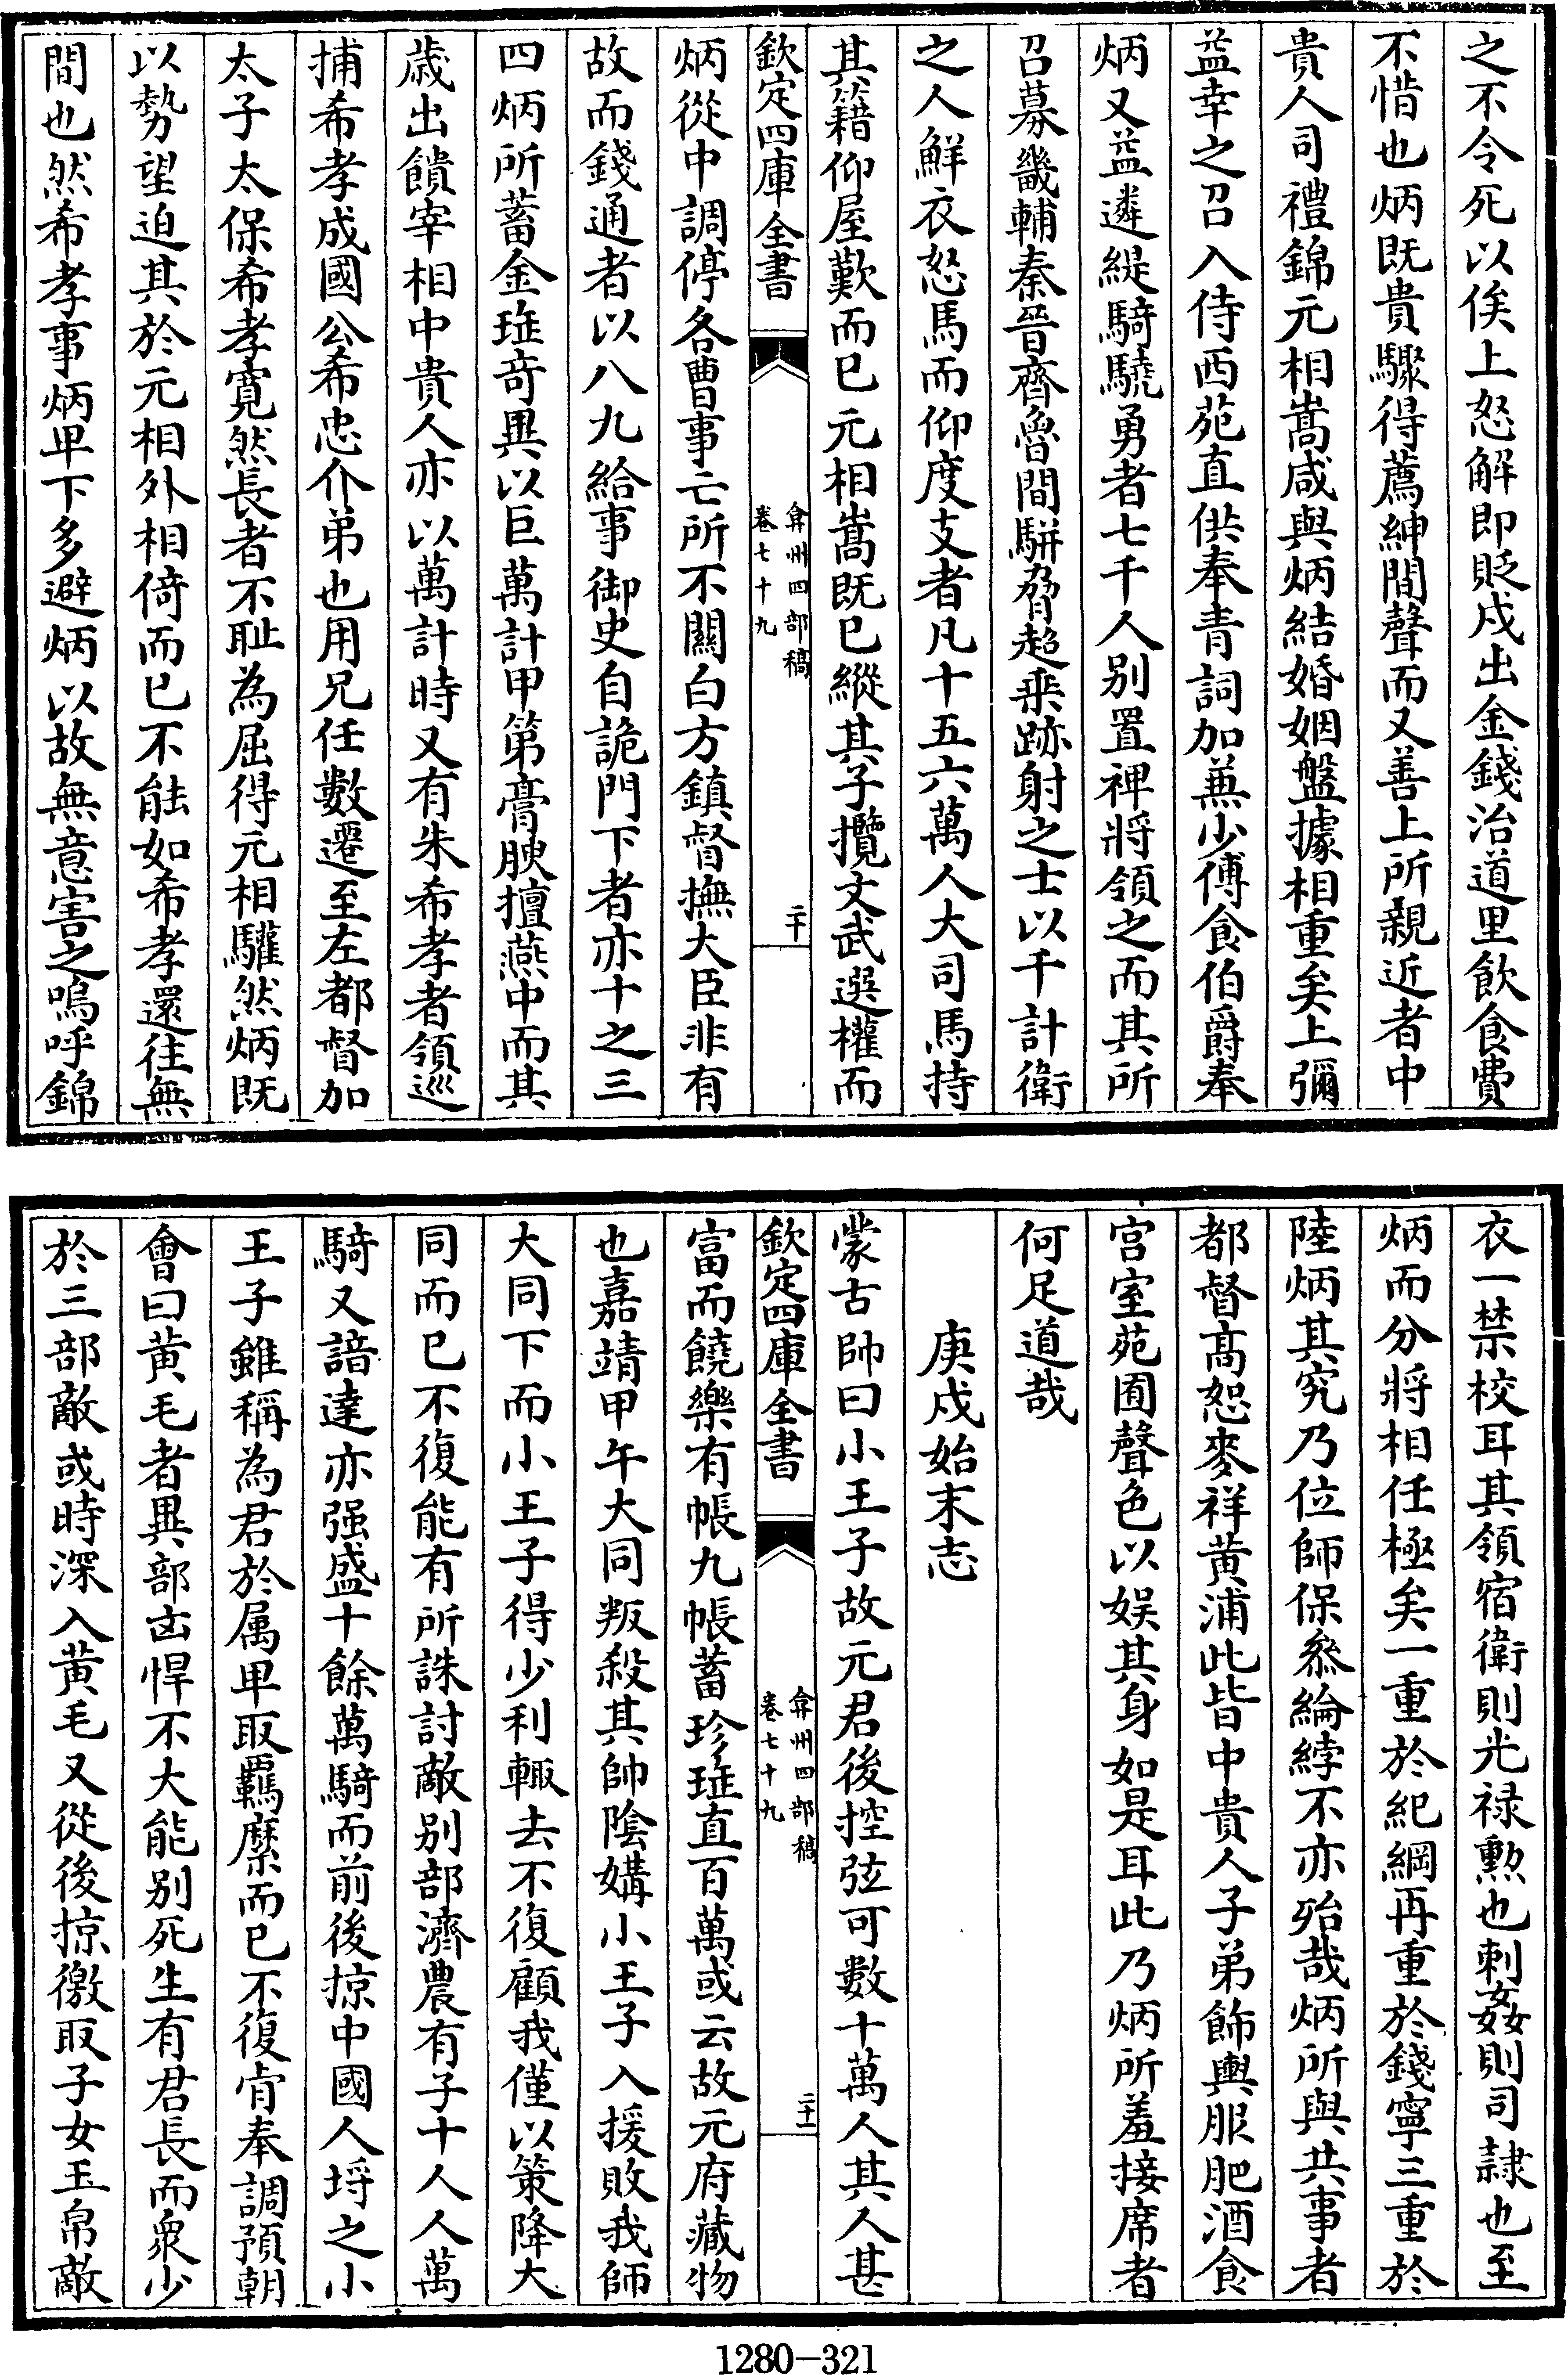 之不令死以俟上怒解即貶戍出金錢治道里飲食費
不惜也炳既貴驟得薦紳間聲而又善上所親近者中
貴人司禮錦元相嵩咸與炳結婚姻盤據相重矣上彌
益幸之召入侍西苑直供奉青詞加兼少傅食伯爵奉
炳又益遴緹騎驍勇者七千人别置裨將領之而其所
召募畿輔秦晉齊魯間駢脅超乗跡射之士以千計衛
之人鮮衣怒馬而仰度支者凡十五六萬人大司馬持
其籍仰屋歎而已元相嵩既已縱其子攬文武選權而
欽定四庫全書
弇州四部稿
卷七十九
二十
炳從中調停各曹事亡所不關白方鎮督撫大臣非有
故而錢通者以八九給事御史自詭門下者亦十之三
四炳所蓄金琟竒異以巨萬計甲第膏腴擅燕中而其
歳出饋宰相中貴人亦以萬計時又有朱希孝者領巡
捕希孝成國公希忠介弟也用兄任數遷至左都督加
太子太保希孝寛然長者不耻為屈得元相驩然炳既
以勢望迫其於元相外相倚而已不能如希孝還往無
間也然希孝事炳卑下多避炳以故無意害之嗚呼錦
衣一禁校耳其領宿衛則光禄勲也刺姦則司隷也至
炳而分將相任極矣一重於紀綱再重於錢寧三重於
陸炳其究乃位師保叅綸綍不亦殆哉炳所與共事者
都督髙恕麥祥黄浦此皆中貴人子弟飾輿服肥酒食
宫室苑囿聲色以娱其身如是耳此乃炳所羞接席者
何足道哉
庚戍始末志
蒙古帥曰小王子故元君後控弦可數十萬人其人甚
欽定四庫全書
弇州四部稿
卷七十九
二十一
富而饒樂有帳九帳蓄珍琟直百萬或云故元府藏物
也嘉靖甲午大同叛殺其帥陰媾小王子入援敗我師
大同下而小王子得少利輙去不復顧我僅以策降大
同而已不復能有所誅討敵别部濟農有子十人人萬
騎又諳達亦强盛十餘萬騎而前後掠中國人埒之小
王子雖稱為君於属卑取羈縻而已不復肯奉調預朝
會曰黄毛者異部㐫悍不大能别死生有君長而衆少
於三部敵或時深入黄毛又從後掠徼取子女玉帛敵
1280-321